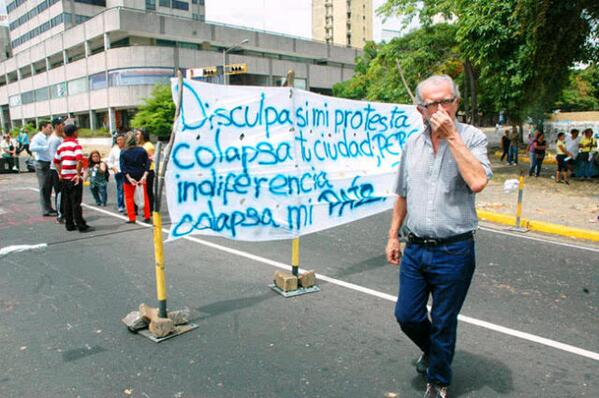 Disculpa si mi protesta
colapsa tu ciudad, PERO
indiferencia
colapsa mi PAÍS